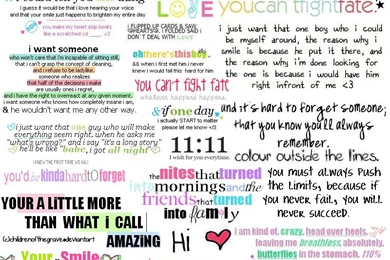 i guess it would be that i love hearing your voice.
and that your smile just happens to brighten my entire day
you make my heart skip beats
like a scratched cd
i want someone
who won't care that i'm incapable of sitting still,
that i can't grasp the concept of cleaning,
and i refuse to be ladylike.
someone who realizes
that half of the decisions i make
are usually ones i regret,
and i have the right to overreact at any given moment.
i want someone who knows how completely insane i am,
& he wouldn't want me any other way.
i just want that one guy who will make
everything seem right. when he asks me
"what's wrong?" and i say "it's a long story"
he'll be like "babe, i got all night"
you'd be kinda hard to forget
YOUR A LITTLE MORE
THAN WHAT i CALL
AMAZING
(c)childrenofthegrave@deviantart
Your Smile
I FLIPPED UP CARDS & SAW
4HEARTS, I FOLDED & SAID I
DON'T DEAL WITH LOVE
oh there's this boy
you can't fight fate
whatever happens happens
& if one day
actually start to matter
please let me know <3
11:11
I wish for you everytime.
the nites that turned
into mornings and the
friends that turned
into family
Hi
LOVE
you can't fight fate.
i just want that one boy who i could
be myself around, the reason why i
smile is because he put it there, and
the reason why i'm doing looking for
the one is because i would have him
right infront of me <3
and it's hard to forget someone,
that you know you'll always
remember.
colour outside the lines.
You must always push
the limits, because if
you never fail, you will
never succeed.
i am kind of, crazy, head over heels,
leaving me breathless, absolutely,
butterflies in the stomach, 110%